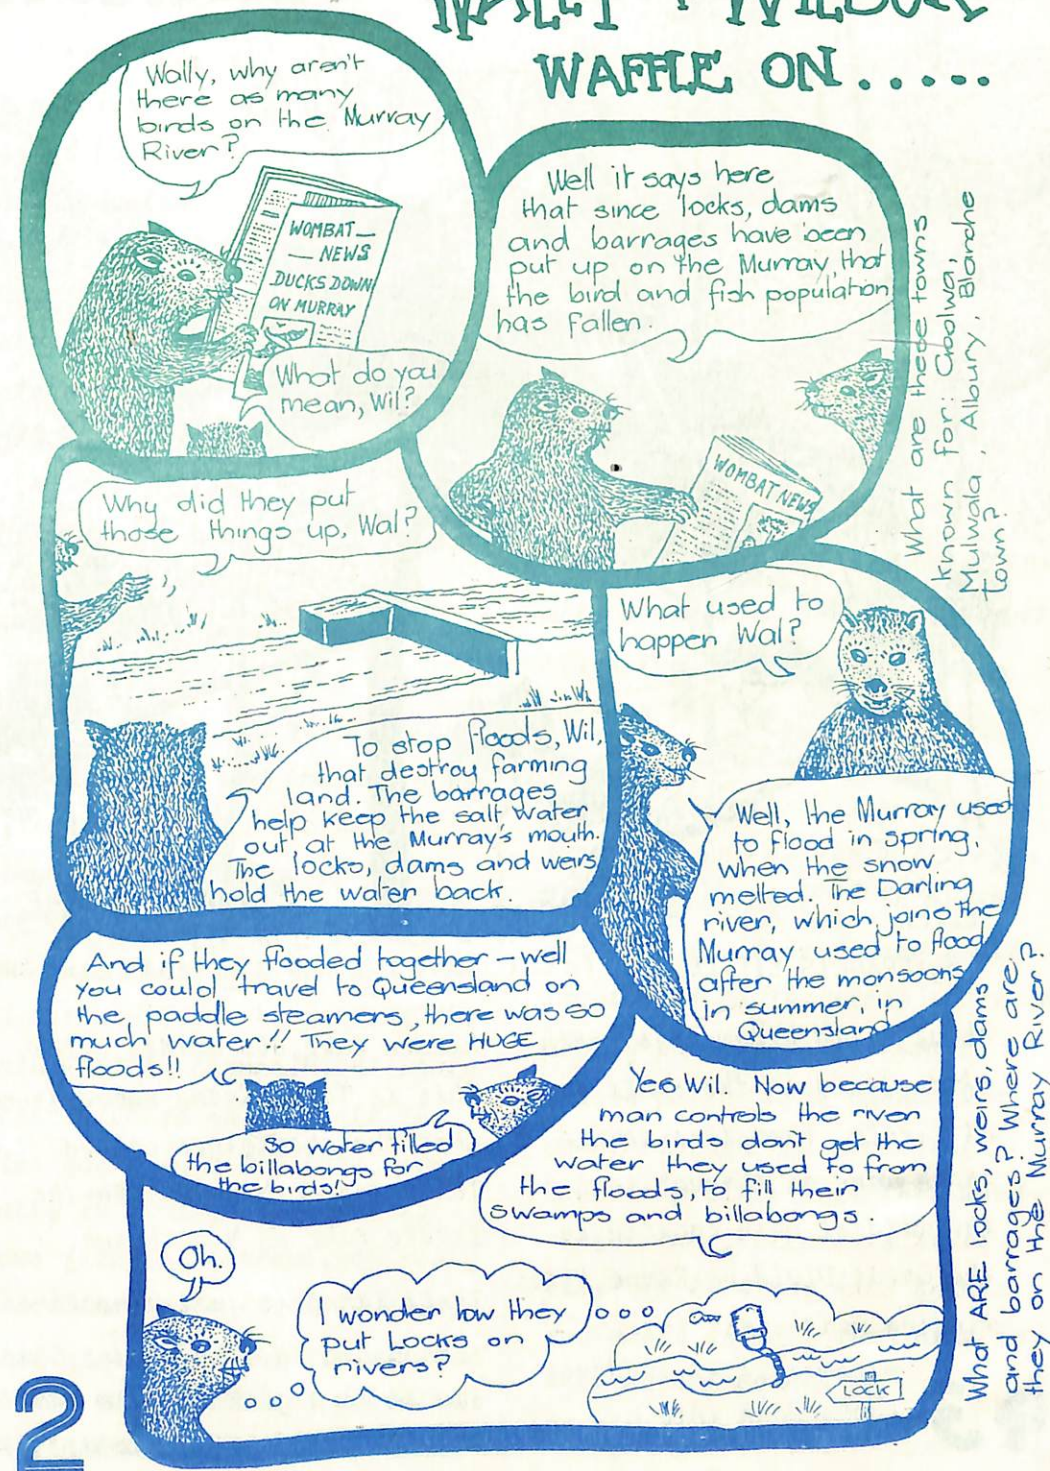 WALLY + WILBUR
WAFFLE ON.....
Wally, why aren't
there as many
birds on the Murray
River?
WOMBAT
NEWS
DUCKS DOWN
ON MURRAY
What do you
mean, Wil?
Well it says here
that since locks, dams
and barrages have been
put up on the Murray, that
the bird and fish population
has fallen.
WOMBAT NEWS
What are these towns
known for: Goolwa,
Mulwala, Albury, Blanche
town?
Why did they put
those things up, Wal?
To stop floods, Wil,
that destroy farming
land. The barrages
help keep the salt water
out, at the Murray's mouth.
The locks, dams and weirs
hold the water back.
What used to
happen Wal?
Well, the Murray used
to flood in spring,
when the snow
melted. The Darling
river, which joins the
Murray used to flood
after the monsoons
in summer, in
Queensland
And if they flooded together - well
you could travel to Queensland on
the paddle steamers, there was so
much water!! They were HUGE
floods!!
So water filled
the billabongs for
the birds!
Yes Wil. Now because
man controls the river
the birds don't get the
water they used to from
the floods, to fill their
swamps and billabongs.
Oh.
I wonder how they
put Locks on
rivers?
LOCK
What ARE locks, weirs, dams
and barrages? Where are
they on the Murray River?
2